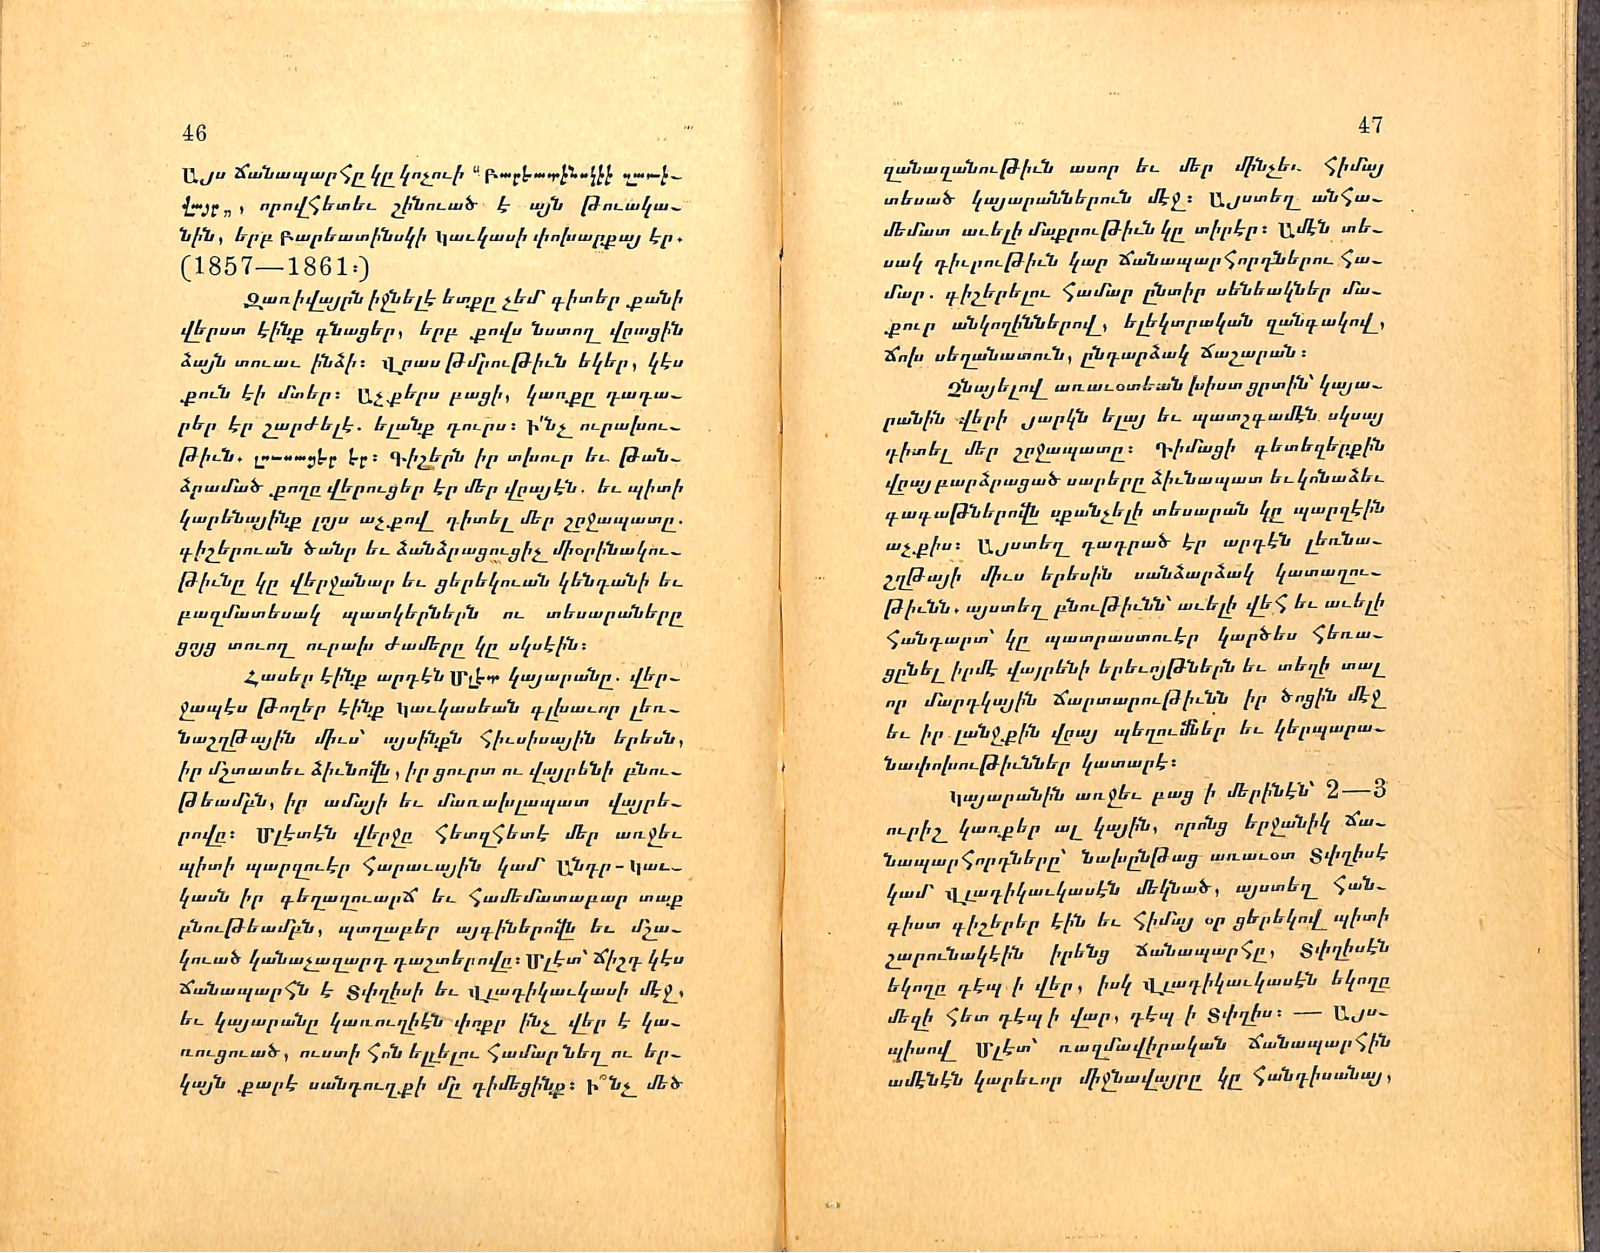 46
Այս ճանապարհը կը կոչուի “Բարեատինսկիի զառի-
վայր„, որովհետեւ շինուած է այն թուակա-
նին, երբ Բարեատինսկի Կաւկասի փոխարքայ էր.
(1857—1861։)
Զառիվայրն իջնելէ ետքը չեմ՝ գիտեր քանի
վերստ էինք գնացեր, երբ քովս նստող վրացին
ձայն տուաւ ինձի։ Վրաս թմրութիւն եկեր, կէս
քուն էի մտեր։ Աչքերս բացի, կառքը դադա-
րեր էր շարժելէ. ելանք դուրս։ Ի՜նչ ուրախու-
թիւն. լուսացեր էր։ Գիշերն իր տխուր եւ թան-
ձրամած քողը վերուցեր էր մեր վրայէն. եւ պիտի
կարենայինք լոյս աչքով դիտել մեր շրջապատը.
գիշերուան ծանր եւ ձանձրացուցիչ միօրինակու-
թիւնը կը վերջանար եւ ցերեկուան կենդանի եւ
բազմատեսակ պատկերներն ու տեսարանները
ցոյց տուող ուրախ ժամերը կը սկսէին։
Հասեր էինք արդէն Մլէտ կայարանը. վեր-
ջապէս թողեր էինք Կաւկասեան գլխաւոր լեռ-
նաշղթային միւս՝ այսինքն հիւսիսային երեսն,
իր մշտատեւ ձիւնովն, իր ցուրտ ու վայրենի բնու-
թեամբն, իր ամայի եւ մառախլապատ վայրե-
րովը։ Մլէտէն վերջը հետզհետէ մեր առջեւ
պիտի պարզուէր հարաւային կամ՝ Անդր-Կաւ-
կասն իր գեղազուարճ եւ համեմատաբար տաք
բնութեամբն, պտղաբեր այգիներովն եւ մշա-
կուած կանաչազարդ դաշտերովը։ Մլէտ՝ ճիշդ կէս
ճանապարհն է Տփղիսի եւ Վլադիկաւկասի մէջ,
եւ կայարանը կառուղիէն փոքր ինչ վեր է կա-
ռուցուած, ուստի հոն ելլելու համար նեղ ու եր-
կայն քարէ սանդուղքի մը դիմեցինք։ Ի՞նչ մեծ
47
զանազանութիւն ասոր եւ մեր մինչեւ հիմայ
տեսած կայարաններուն մէջ։ Այստեղ անհա-
մեմատ աւելի մաքրութիւն կը տիրէր։ Ամէն տե-
սակ դիւրութիւն կար ճանապարհորդներու հա-
մար. գիշերելու համար ընտիր սենեակներ մա-
քուր անկողիններով, ելեկտրական զանգակով,
ճոխ սեղանատուն, ընդարձակ ճաշարան։
Չնայելով առաւօտեան խիստ ցրտին՝ կայա-
րանին վերի յարկն ելայ եւ պատշգամէն սկսայ
դիտել մեր շրջապատը։ Դիմացի գետեզերքին
վրայ բարձրացած սարերը ձիւնապատ եւ կոնաձեւ
գագաթներովն սքանչելի տեսարան կը պարզէին
աչքիս։ Այստեղ դադրած էր արդէն լեռնա-
շղթայի միւս երեսին սանձարձակ կատաղու-
թիւնն. այստեղ բնութիւնն՝ աւելի վեհ եւ աւելի
հանդարտ՝ կը պատրաստուէր կարծես հեռա-
ցընել իրմէ վայրենի երեւոյթներն եւ տեղի տալ
որ մարդկային ճարտարութիւնն իր ծոցին մէջ
եւ իր լանջքին վրայ պեղումներ եւ կերպարա-
նափոխութիւններ կատարէ։
Կայարանին առջեւ բաց ի մերինէն՝ 2—3
ուրիշ կառքեր ալ կային, որոնց երջանիկ ճա-
նապարհորդները՝ նախընթաց առաւօտ Տփղիսէ
կամ՝ Վլադիկաւկասէն մեկնած, այստեղ հան-
գիստ գիշերեր էին եւ հիմայ օր ցերեկով պիտի
շարունակէին իրենց ճանապարհը, Տփղիսէն
եկողը դէպ ի վեր, իսկ Վլադիկաւկասէն եկողը
մեզի հետ դէպ ի վար, դէպ ի Տփղիս։ — Այս-
պիսով Մլէտ՝ ռազմավիրական ճանապարհին
ամէնէն կարեւոր միջնավայրը կը հանդիսանայ,